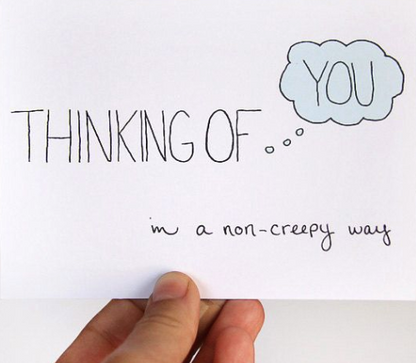 THINKING OF YOU
in a non-creepy way